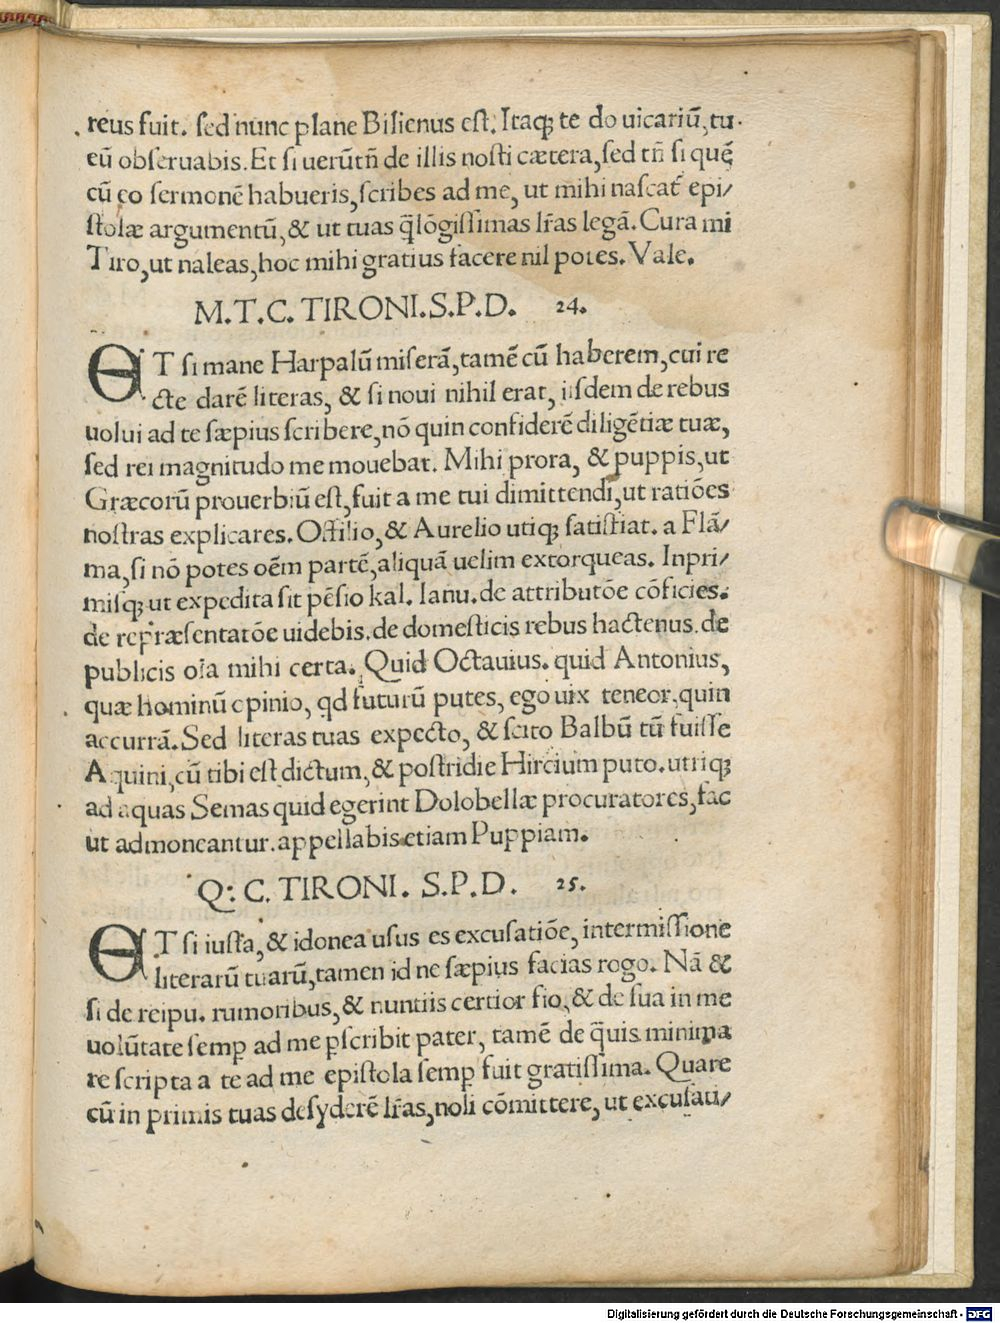 reus fuit. sed nunc plane Bilienus est. Itaq; te do uicariū, tu
eū obseruabis. Et si uerūtñ de illis nosti cætera, sed tñ si quē
cū eo sermonē habueris, scribes ad me, ut mihi nascat epi/
stolæ argumentū, & ut tuas q̃lōgissimas lr̃as legā. Cura mi
Tiro, ut ualeas, hoc mihi gratius facere nil potes. Vale.
M.T.C. TIRONI.S.P.D. 24.
ET si mane Harpalū miserā, tamē cū haberem, cui re
cte darē literas, & si noui nihil erat, iisdem de rebus
uolui ad te sæpius scribere, nō quin confiderē diligētiæ tuæ,
sed rei magnitudo me mouebat. Mihi prora, & puppis, ut
Græcorū prouerbiū est, fuit a me tui dimittendi, ut ratiōes
nostras explicares. Offilio, & Aurelio utiq; satisfiat. a Flā/
ma, si nō potes oēm partē, aliquā uelim extorqueas. Inpri/
misq; ut expedita sit pēsio kal. Ianu. de attributōe cōficies.
de repræsentatōe uidebis. de domesticis rebus hactenus. de
publicis oīa mihi certa. Quid Octauius. quid Antonius,
quæ hominū opinio, qd futurū putes, ego uix teneor, quin
accurrā. Sed literas tuas expecto, & scito Balbū tū fuisse
Aquini, cū tibi est dictum, & postridie Hircium puto. utriq;
ad aquas Semas quid egerint Dolobellæ procuratores, fac
ut admoneantur. appellabis etiam Puppiam.
Q: C. TIRONI. S.P.D. 25.
ET si iusta, & idonea usus es excusatiōe, intermissione
literarū tuarū, tamen id ne sæpius facias rogo. Nā &
si de reipu. rumoribus, & nuntiis certior fio, & de sua in me
uolūtate semp ad me pscribit pater, tamē de q̃uis minima
re scripta a te ad me epistola semp fuit gratissima. Quare
cū in primis tuas desyderē lr̃as, noli cōmittere, ut excusati/
Digitalisierung gefördert durch die Deutsche Forschungsgemeinschaft - DFG